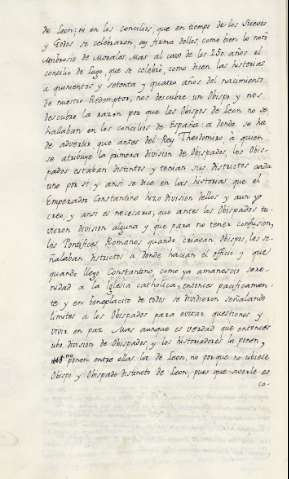 de Leon; ni en los concilios, que en tiempo de los Suevos
y Godos se celebraron, ay firma dellos, como bien lo notó
Ambrosio de Morales. Mas al cavo de los 250 años el
concilio de Lugo, que se celebró, como dicen las historias
a quinientos y setenta y quatro años del nacimiento
de nuestro Redemptor, nos descubre un Obispo y nos
descubre la razon por que los Obispos de Leon no se
hallaban en los concilios de España: a donde se ha
de advertir que antes del Rey Theodomiro à quien
se atribuye la primera division de Obispados, los Obis-
pados estaban distintos y tenian sus districtos cada
uno por si y ansi se dice en las historias que el
Emperador Constantino hizo division dellos y aun yo
creo, y ansi es necesario, que antes los Obispados tu-
vieron division alguna y que para no tener confusion,
los Pontifices Romanos quando criaban Obispos, les se-
ñalaban districtos à donde hacian el officio y que
quando llegó Constantino, como ya amanecia sere-
nidad a la Iglesia catholica, entonces pacificamen-
te y en beneplacito de todos se dividieron señalando
limites a los Obispados para evitar questiones y
vivir en paz. Mas aunque es verdad que entonces
ubo division de Obispados, y los historiadores la ponen,
no ponen entre ellas la de Leon, no por que no ubiese
Obispo y Obispado distincto de Leon, pues que averle es
co-